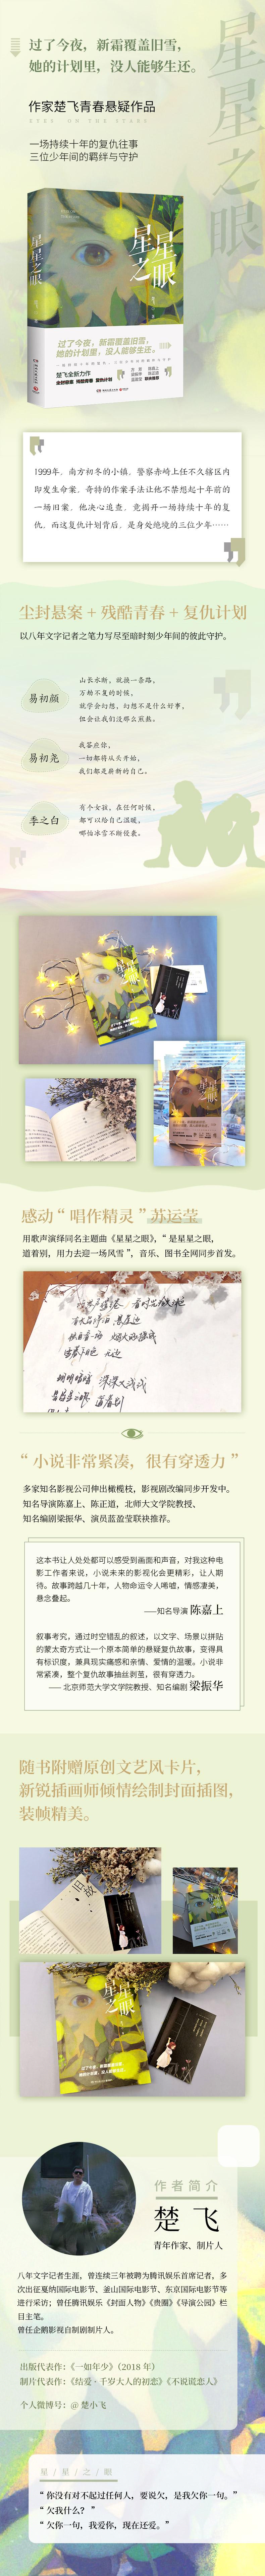 星星之眼
过了今夜，新霜覆盖旧雪，
她的计划里，没人能够生还。
作家楚飞青春悬疑作品
EYES ON THE STARS
一场持续十年的复仇往事
三位少年间的羁绊与守护
星星之眼
星星之眼
过了今夜，新霜覆盖旧雪，
她的计划里，没人能够生还。
楚飞全新力作
1999年，南方初冬的小镇，警察赤崎上任不久辖区内
即发生命案，奇特的作案手法让他不禁想起十年前的
一场旧案。他决心追查，竟揭开一场持续十年的复
仇，而这复仇计划背后，是身处绝境的三位少年……
尘封悬案 + 残酷青春 + 复仇计划
以八年文字记者之笔力写尽至暗时刻少年间的彼此守护。
易初颜
山长水断，就换一条路，
万劫不复的时候，
就学会幻想，幻想不是什么好事，
但会让我们没那么煎熬。
易初尧
我答应你，
一切都将从头开始，
我们都是崭新的自己。
季之白
有个女孩，在任何时候，
都可以给自己温暖，
哪怕冰雪不断侵袭。
感动“唱作精灵”苏运莹
用歌声演绎同名主题曲《星星之眼》，“是星星之眼，
道着别，用力去迎一场风雪”，音乐、图书全网同步首发。
“小说非常紧凑，很有穿透力”
多家知名影视公司伸出橄榄枝，影视剧改编同步开发中。
知名导演陈嘉上、陈正道，北师大文学院教授、
知名编剧梁振华、演员蓝盈莹联袂推荐。
这本书让人处处都可以感受到画面和声音，对我这种电
影工作者来说，小说未来的影视化会更精彩，让人期
待。故事跨越几十年，人物命运令人唏嘘，情感凄美，
悬念叠起。
——知名导演 陈嘉上
叙事考究，通过时空错乱的叙述，以文字、场景以拼贴
的蒙太奇方式让一个原本简单的悬疑复仇故事，变得具
有标识度，兼具现实痛感和亲情、爱情的温暖。小说非
常紧凑，整个复仇故事抽丝剥茧，很有穿透力。
—— 北京师范大学文学院教授、知名编剧 梁振华
随书附赠原创文艺风卡片，
新锐插画师倾情绘制封面插图，
装帧精美。
旧故
星星之眼
过了今夜，新霜覆盖旧雪，
她的计划里，没人能够生还。
作者简介
楚 飞
青年作家、制片人
八年文字记者生涯，曾连续三年被聘为腾讯娱乐首席记者，多
次出征戛纳国际电影节、釜山国际电影节、东京国际电影节等
进行采访；曾任腾讯娱乐《封面人物》《贵圈》《导演公园》栏
目主笔。
曾任企鹅影视自制剧制片人。
出版代表作：《一如年少》（2018 年）
制片代表作：《结爱·千岁大人的初恋》《不说谎恋人》
个人微博号：@ 楚小飞
星/星/之/眼
“你没有对不起过任何人，要说欠，是我欠你一句。”
“欠我什么？”
“欠你一句，我爱你，现在还爱。”